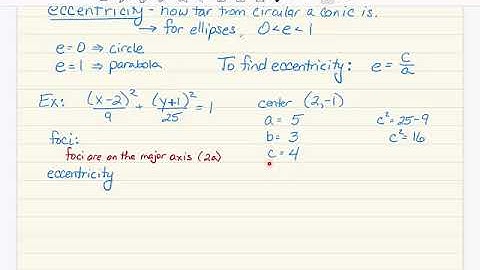 eccentricity - how far from circular a conic is.
→ for ellipses, 0<e<1
e=0 ⇒ circle
e=1 ⇒ parabola
To find eccentricity: e = c/a
Ex: (x-2)²/9 + (y+1)²/25 = 1
center (2,-1)
a = 5
b = 3
c = 4
c²=25-9
c²=16
foci:
foci are on the major axis (2a)
eccentricity